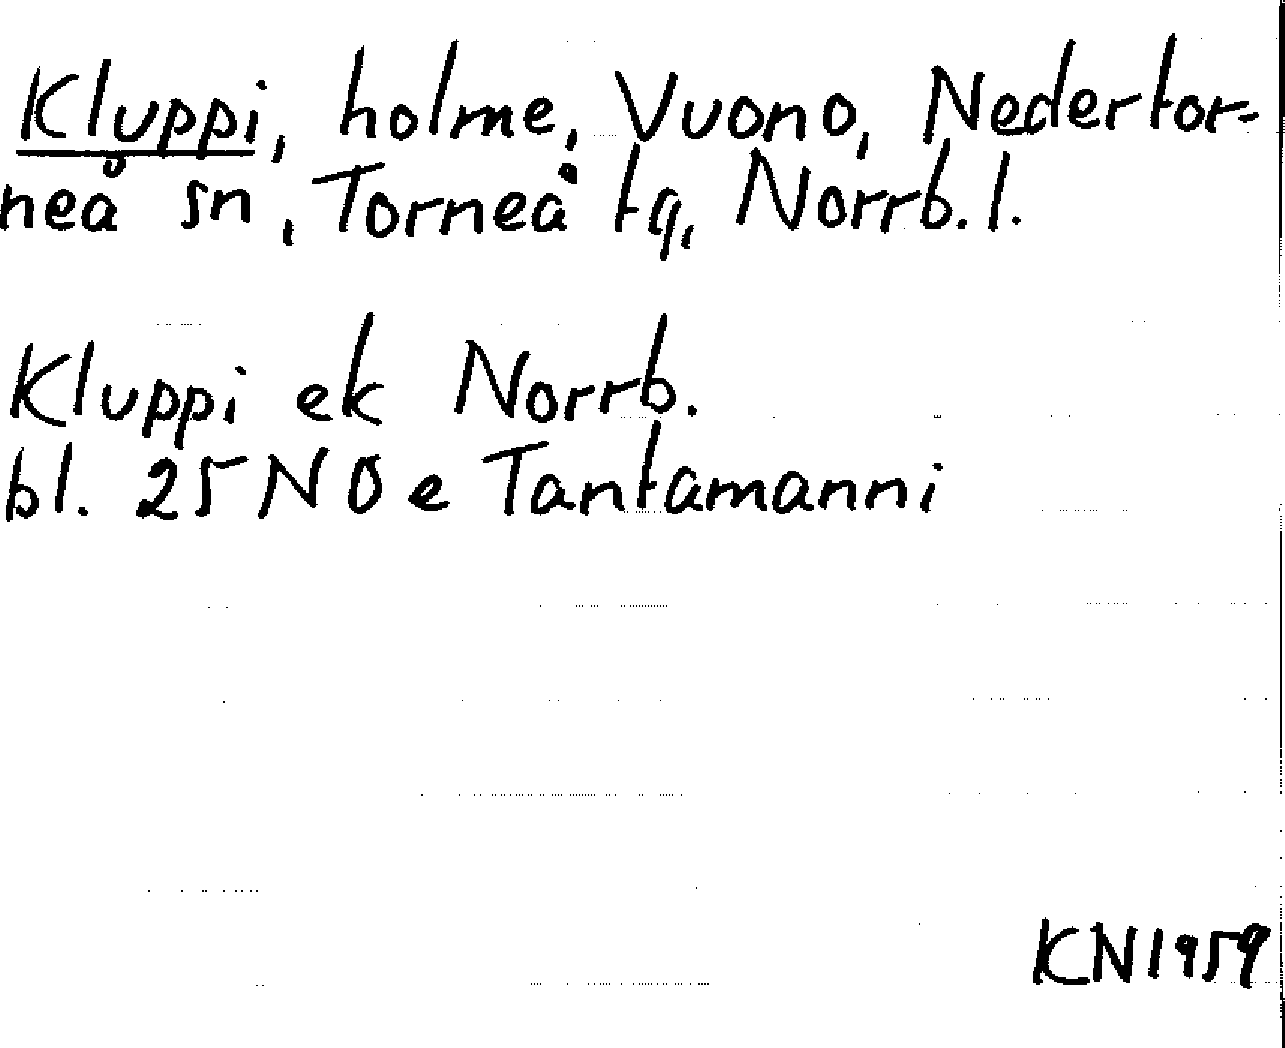 Kluppi, holme, Vuono, Nedertor-
neå sn, Torneå tg, Norrb. l.
Kluppi ek Norrb.
bl. 25 NO e Tantamanni
KN1959